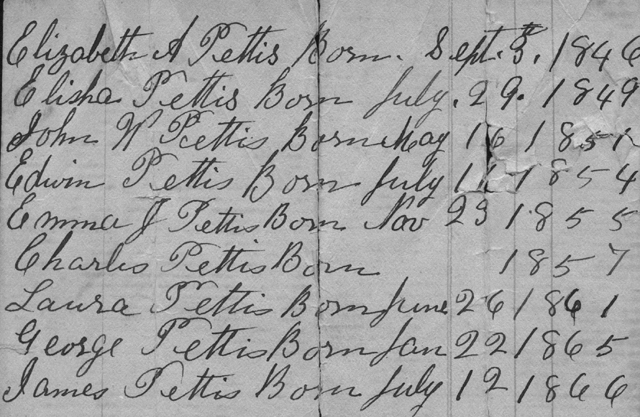 Elizabeth A Pettis Born. Sept. 3. 1846
Elisha Pettis Born July. 29. 1849
John W Pettis Born May 16 1851
Edwin Pettis Born July 11 1854
Emma J Pettis Born Nov 23 1855
Charles Pettis Born 1857
Laura Pettis Born June 26 1861
George Pettis Born Jan 22 1865
James Pettis Born July 12 1866